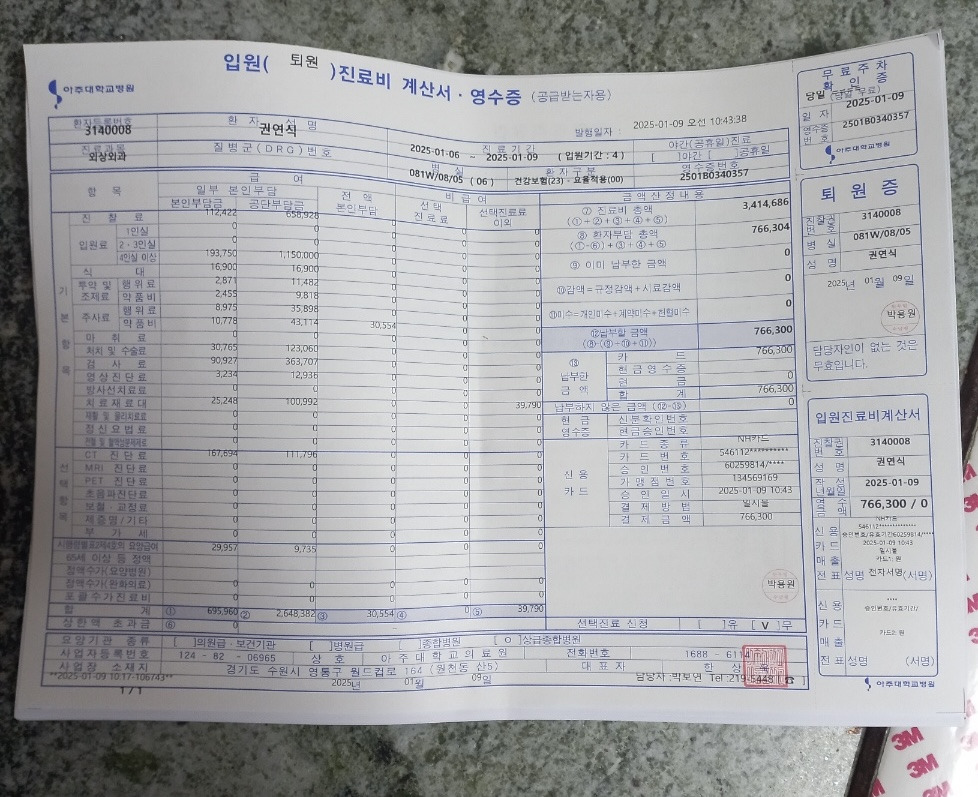 입원( 퇴원 )진료비 계산서 · 영수증 (공급받는자용)
아주대학교병원
발행일자 : 2025-01-09 오선 10:43:38
환자등록번호 환 자 성 명 진 료 기 간 야간(공휴일)진료
3140008 권연식 2025-01-06 ~ 2025-01-09 ( 입원기간 : 4 ) [ ]야간 [ ]공휴일
진료과목 질 병 군 ( D R G ) 번 호 병 실 환 자 구 분 영수증번호
외상외과 081W/08/05 ( 06 ) 건강보험(23) - 요율적용(00) 2501B0340357
항 목 급 여 비 급 여 금 액 산 정 내 용
일 부 본 인 부 담 전 액 본인부담 선 택 진 료 료 선택진료료 이외
본인부담금 공단부담금
기 본 항 목
진 찰 료 112,422 658,928 0 0 0
입원료 1인실 0 0 0 0 0
2 · 3인실 0 0 0 0 0
4인실 이상 193,750 1,150,000 0 0 0
식 대 16,900 16,900 0 0 0
투약 및 조제료 행위료 2,871 11,482 0 0 0
약품비 2,455 9,818 0 0 0
주사료 행위료 8,975 35,898 0 0 0
약품비 10,778 43,114 30,554 0 0
마 취 료 0 0 0 0 0
처치 및 수술료 30,765 123,060 0 0 0
검 사 료 90,927 363,707 0 0 0
영상진단료 3,234 12,936 0 0 0
방사선치료료 0 0 0 0 0
치료재료대 25,248 100,992 0 0 39,790
재활 및 물리치료료 0 0 0 0 0
정신요법료 0 0 0 0 0
전혈 및 혈액성분제제료 0 0 0 0 0
선 택 항 목
CT 진단료 167,694 111,796 0 0 0
MRI 진단료 0 0 0 0 0
PET 진단료 0 0 0 0 0
초음파진단료 0 0 0 0 0
보철 · 교정료 0 0 0 0 0
제증명 / 기타 0 0 0 0 0
부 가 세 0 0
29,957 9,735 0 0
65세 이상 등 정액
정액수가(요양병원)
정액수가(완화의료)
포괄수가진료비
합 계 ① 695,960 ② 2,648,382 ③ 30,554 ④ 0 ⑤ 39,790
상한액 초과금 ⑥ 0 -
선택진료 신청 [ ]유 [ V ]무
⑦ 진료비 총액 3,414,686
(①+②+③+④+⑤)
⑧ 환자부담 총액 766,304
(①-⑥)+③+④+⑤
⑨ 이미 납부한 금액 0
⑩감액=규정감액+시료감액 0
⑪미수=개인미수+계약미수+헌혈미수 0
⑫납부할 금액 766,300
(⑧-(⑨+⑩+⑪))
⑬ 납부한 금 액
카 드 766,300
현금영수증
현 금 0
합 계 766,300
납부하지 않은 금액 (⑫-⑬) 0
현 금 영수증 신분확인번호
현금승인번호
신 용 카 드
카 드 종 류 NH카드
카 드 번 호 546112**********
승 인 번 호 60259814/****
가 맹 점 번 호 134569169
승 인 일 시 2025-01-09 10:43
결 제 방 법 일시불
결 제 금 액 766,300
박용원
요양기관 종류 [ ]의원급 · 보건기관 [ ]병원급 [ ]종합병원 [ o ]상급종합병원
사업자등록번호 124 - 82 - 06965 상 호 아 주 대 학 교 의 료 원 전화번호 1688 - 6114
사업장 소재지 경기도 수원시 영통구 월드컵로 164 (원천동 산5) 대 표 자 한 상 욱
**2025-01-09 10:17-106743** 2025년 01월 09일 담당자 :박보연 Tel :219-5448 ( ☎ )
1 / 1
무 료 주 차
확 인 증
당일 (당일 무료)
일 자 2025-01-09
영수증번호 2501B0340357
아주대학교병원
퇴 원 증
진찰권번호 3140008
병 실 081W/08/05
성 명 권연식
2025년 01월 09일
박용원
담당자인이 없는 것은
무효입니다.
입원진료비계산서
진찰권번호 3140008
성 명 권연식
작 성 년월일 2025-01-09
영 수 금 액 766,300 / 0
신 용 카 드 매 출 전 표
NH카드
546112**************
승인번호/유효기간60259814/****
2025-01-09 10:43
일시불
카드1: 원
성명 전자서명 (서명)
신 용 카 드 매 출 전 표
****
승인번호/유효기간/
카드2: 원
성명 (서명)
아주대학교병원
3M
3M
3M
3M